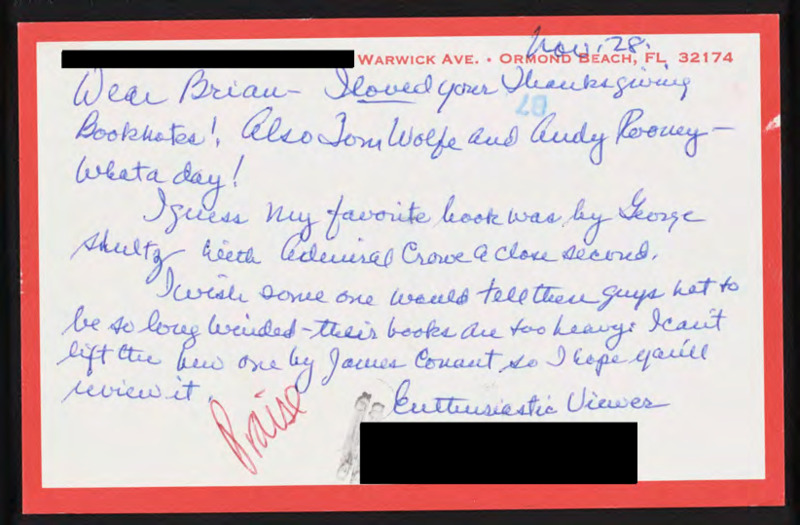 Nov. 28.
WARWICK AVE. • ORMOND BEACH, FL 32174
Dear Brian - I loved your Thanksgiving
87
Booknotes! Also Tom Wolfe and Andy Rooney -
What a day!
I guess my favorite book was by George
Shultz with Admiral Crowe a close second.
I wish some one would tell these guys not to
be so long winded - their books are too heavy. I can't
lift the new one by James Conant so I hope you'll
review it.
Praise
Enthusiastic Viewer